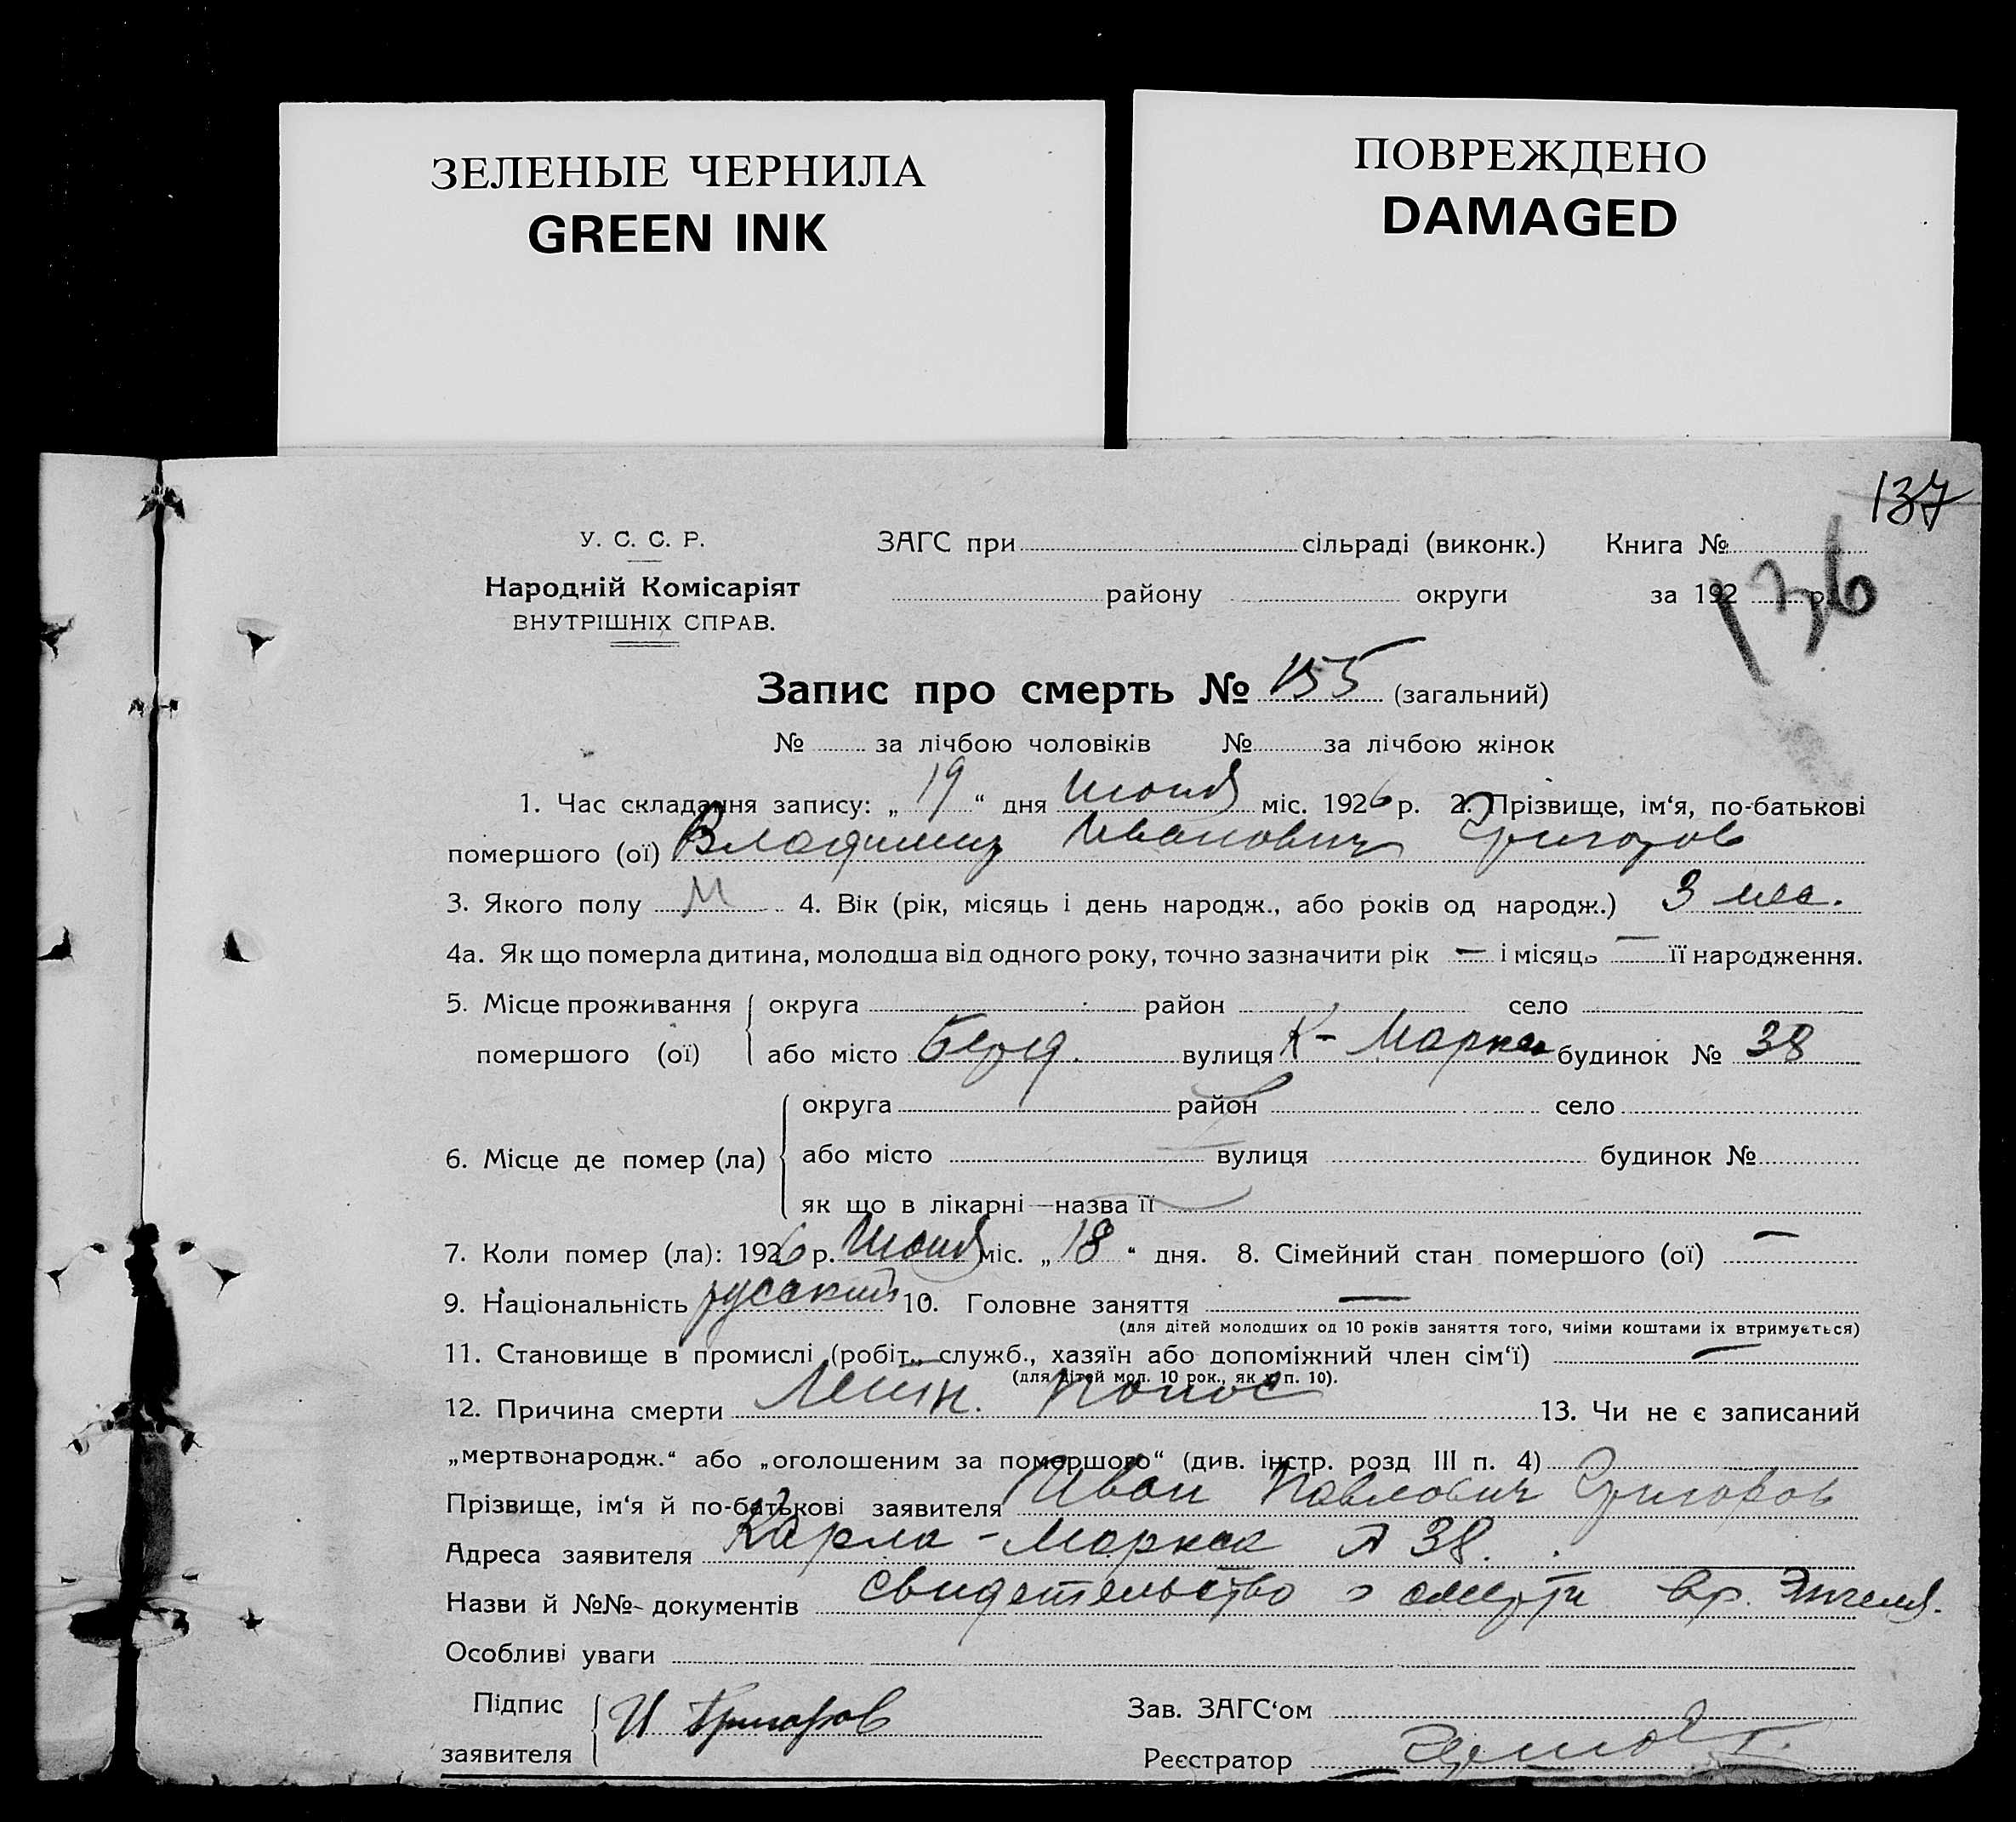 ЗЕЛЕНЫЕ ЧЕРНИЛА
GREEN INK
ПОВРЕЖДЕНО
DAMAGED
137
136
У. С. С. Р.
Народній Комісаріят
ВНУТРІШНІХ СПРАВ.
ЗАГС при сільраді (виконк.)
району округи
Книга №
за 192 р.
Запис про смерть № 155 (загальний)
№ за лічбою чоловіків № за лічбою жінок
1. Час складання запису: „19“ дня июня міс. 1926 р. 2. Прізвище, ім‘я, по-батькові
помершого (ої) Владимир Иванович Григоров
3. Якого полу М 4. Вік (рік, місяць і день народж., або років од народж.) 3 мес.
4а. Як що померла дитина, молодша від одного року, точно зазначити рік — і місяць — її народження.
5. Місце проживання округа район село
помершого (ої) або місто Берд. вулиця К-Маркса будинок № 38
округа район село
6. Місце де помер (ла) або місто вулиця будинок №
як що в лікарні—назва її
7. Коли помер (ла): 1926 р. июня міс. „18“ дня. 8. Сімейний стан помершого (ої) —
9. Національність русский 10. Головне заняття —
(для дітей молодших од 10 років заняття того, чиїми коштами їх втримується)
11. Становище в промислі (робіт., служб., хазяїн або допоміжний член сім‘ї) —
(для дітей мол. 10 рок., як у п. 10).
12. Причина смерти Летн. понос 13. Чи не є записаний
„мертвонародж.“ або „оголошеним за помершого“ (див. інстр. розд III п. 4)
Прізвище, ім‘я й по-батькові заявителя Иван Павлович Григоров
Адреса заявителя Карла-Маркса 38.
Назви й №№ документів свидетельство о смерти вр.
Особливі уваги
Підпис
заявителя И Григоров
Зав. ЗАГС‘ом
Реєстратор